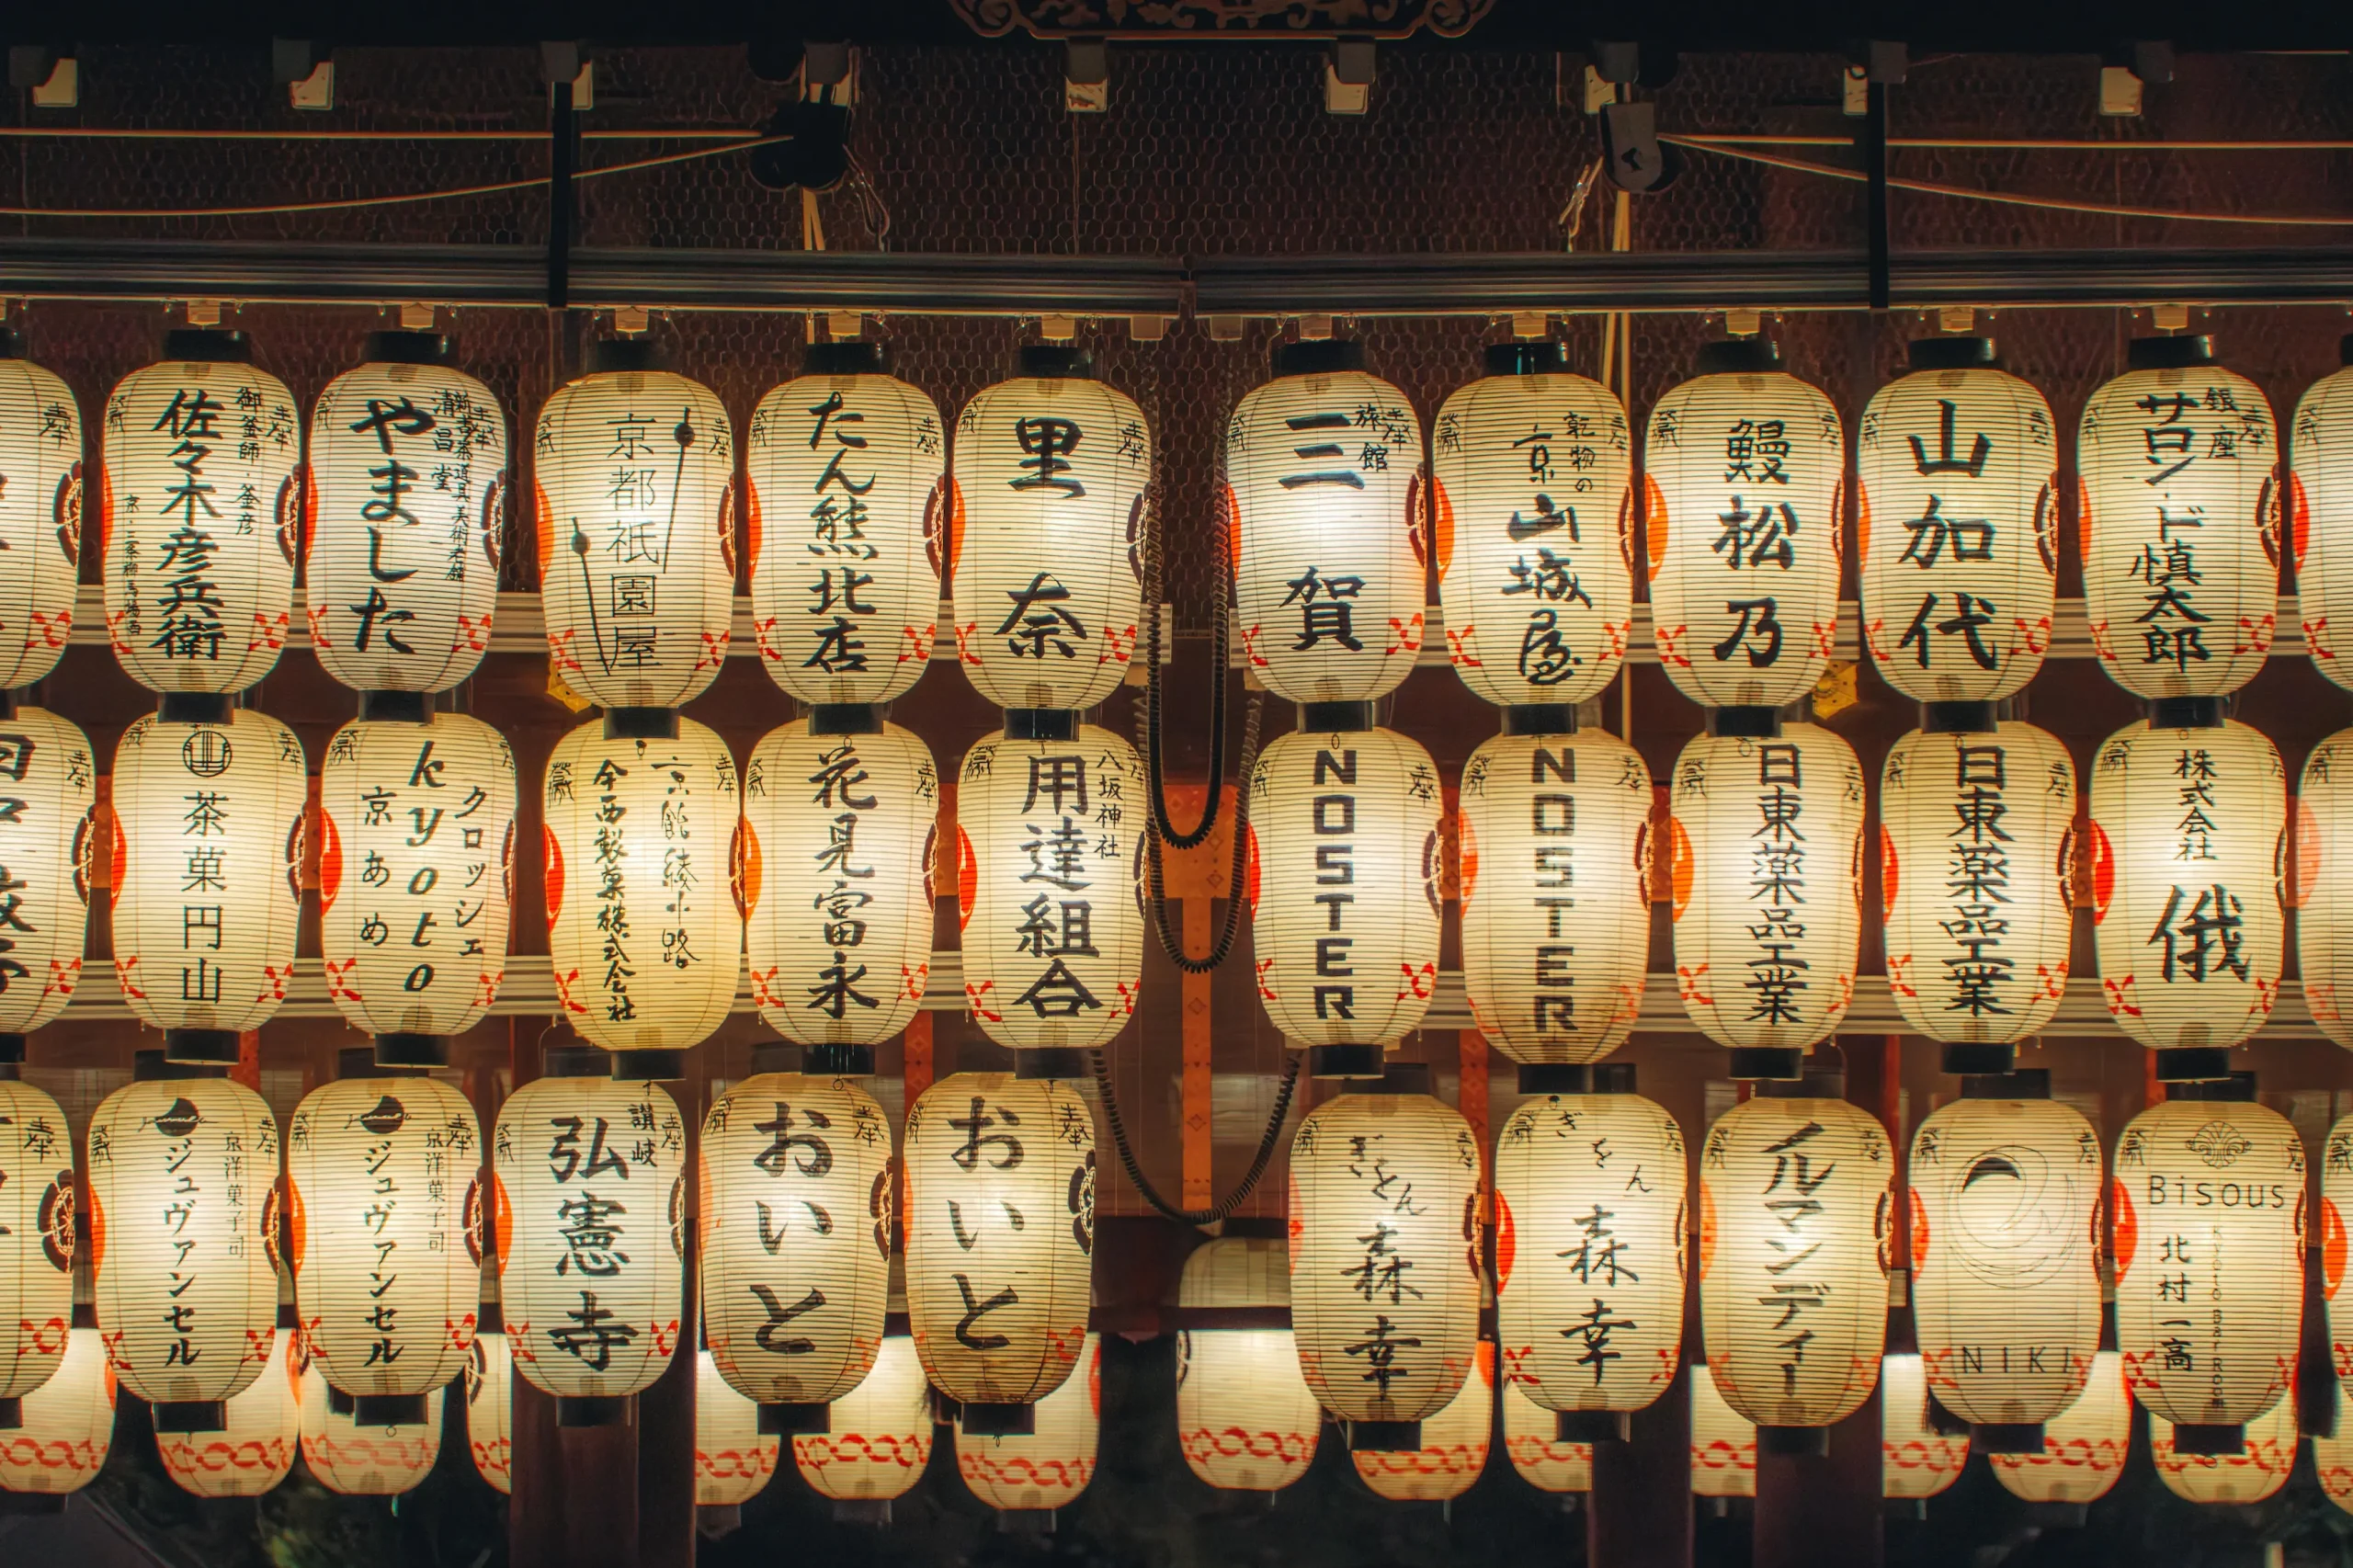 御釜師・釜彦
佐々木彦兵衛
清昌堂
やました
京都祇園屋
たん熊北店
里奈
旅館
三賀
乾物の
京山城屋
鰻松乃
山加代
銀座
サロン・ド慎太郎
茶菓円山
クロッシェ
kyoto
京あめ
京飴綾小路
今西製菓株式会社
花見富永
八坂神社
用達組合
NOSTER
NOSTER
日東薬品工業
日東薬品工業
株式会社
俄
京洋菓子司
ジュヴァンセル
京洋菓子司
ジュヴァンセル
讃岐
弘憲寺
おいと
おいと
ぎをん
森幸
ぎをん
森幸
イルマンディー
NIKI
Bisous
Kyoto Bar Room
北村一高